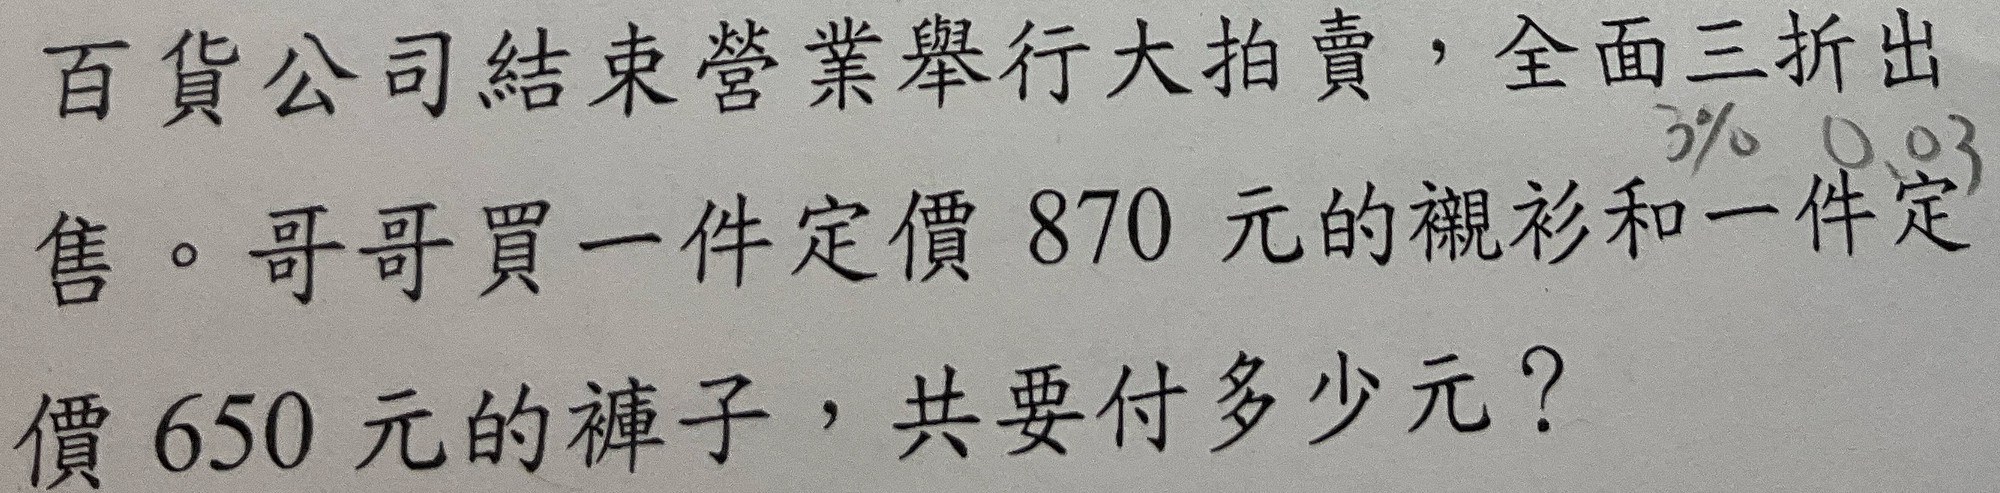 百貨公司結束營業舉行大拍賣，全面三折出
3% 0.03
售。哥哥買一件定價 870 元的襯衫和一件定
價 650 元的褲子，共要付多少元？